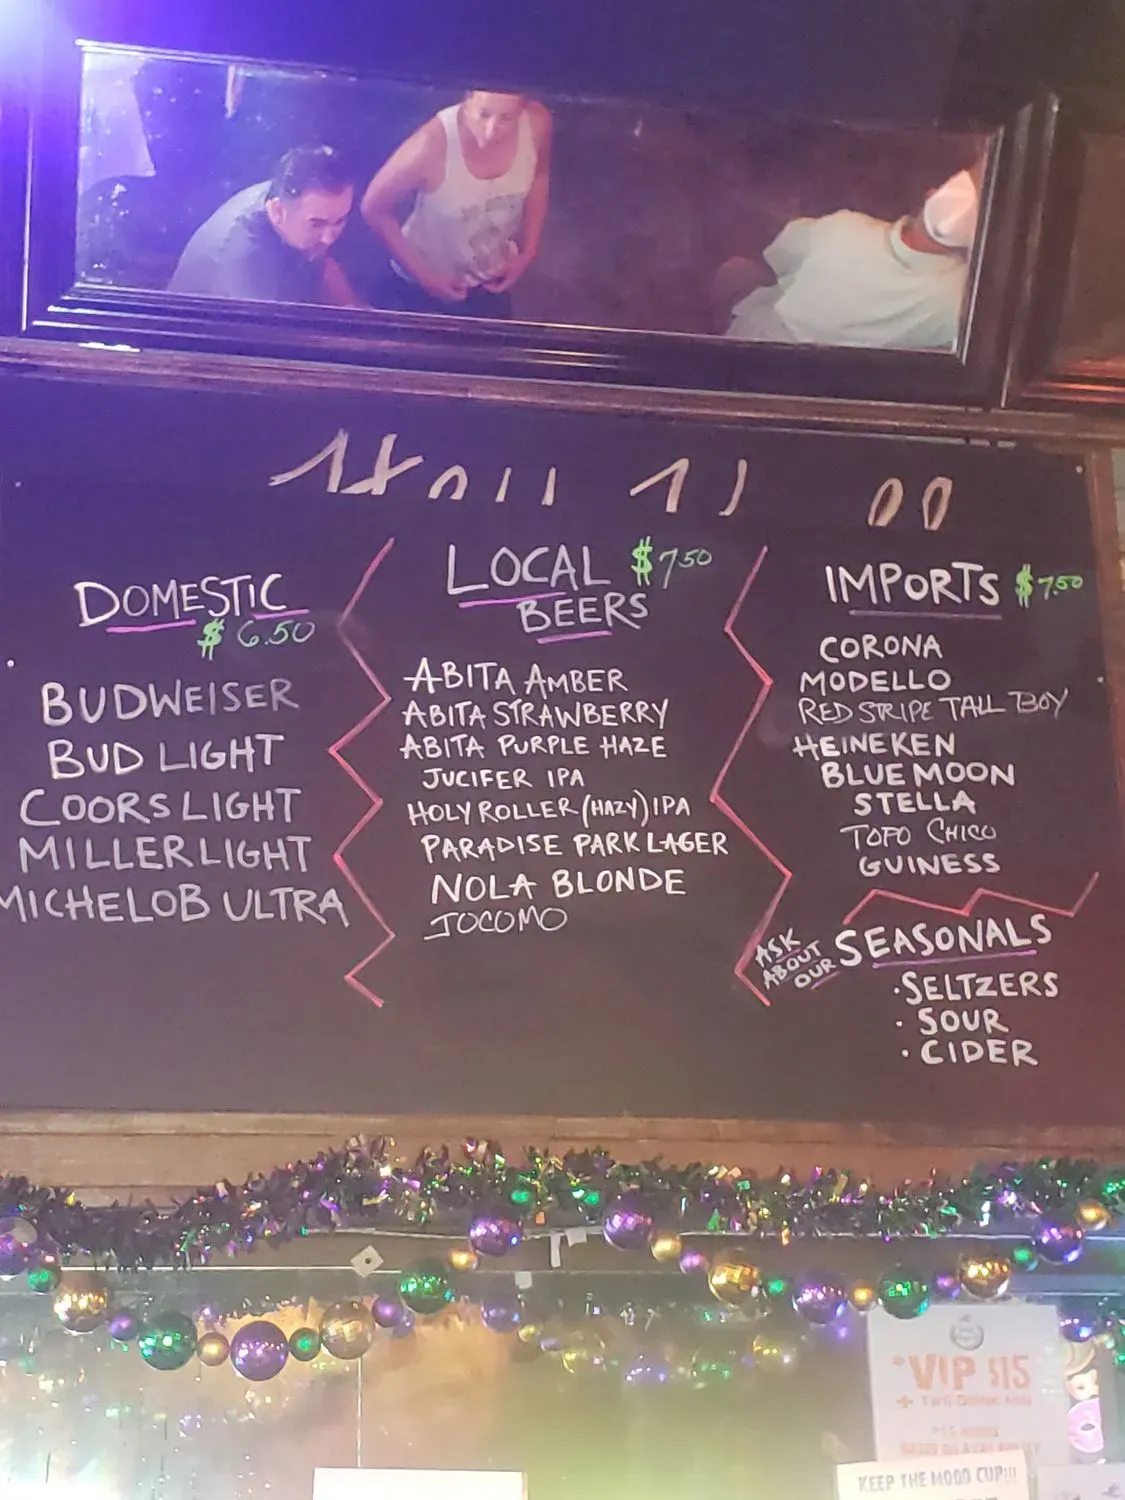 DOMESTIC
$ 6.50
BUDWEISER
BUD LIGHT
COORS LIGHT
MILLER LIGHT
MICHELOB ULTRA
LOCAL $7.50
BEERS
ABITA AMBER
ABITA STRAWBERRY
ABITA PURPLE HAZE
JUCIFER IPA
HOLY ROLLER (HAZY) IPA
PARADISE PARK LAGER
NOLA BLONDE
JOCOMO
IMPORTS $7.50
CORONA
MODELLO
RED STRIPE TALL BOY
HEINEKEN
BLUE MOON
STELLA
TOPO CHICO
GUINESS
ASK
ABOUT
OUR
SEASONALS
· SELTZERS
· SOUR
· CIDER
*VIP $15
+ TWO DRINK MIN
KEEP THE MOOD CUP!!!